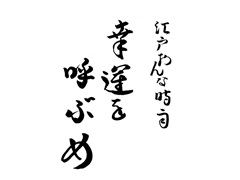 江戸おんな時雨
幸運を
呼ぶめ